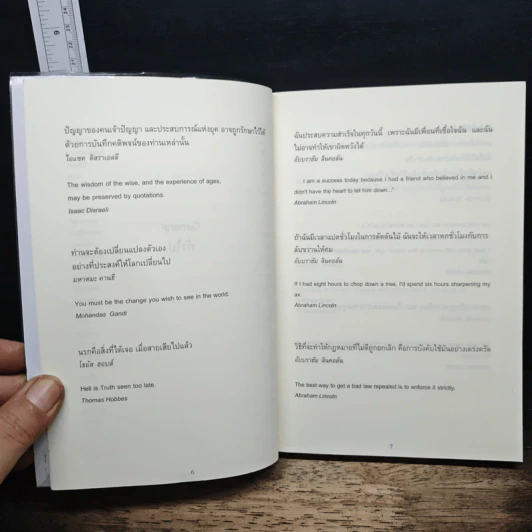 9
ปัญญาของคนเจ้าปัญญา และประสบการณ์แห่งยุค อาจถูกรักษาไว้ได้
ด้วยการบันทึกคติพจน์ของท่านเหล่านั้น
ไอแซค ดิสราเอลี
The wisdom of the wise, and the experience of ages,
may be preserved by quotations.
Isaac Disraeli
ท่านจะต้องเปลี่ยนแปลงตัวเอง
อย่างที่ประสงค์ให้โลกเปลี่ยนไป
มหาตมะ คานธี
You must be the change you wish to see in the world.
Mohandas Gandi
นรกคือสิ่งที่ให้เจอ เมื่อสายเสียไปแล้ว
โธมัส ฮอบส์
Hell is Truth seen too late.
Thomas Hobbes
6
ฉันประสบความสำเร็จในทุกวันนี้ เพราะฉันมีเพื่อนที่เชื่อใจฉัน และฉัน
ไม่อาจทำให้เขาผิดหวังได้
อับบราฮัม ลินคอล์น
I am a success today because I had a friend who believed in me and I
didn't have the heart to let him down..."
Abraham Lincoln
ถ้าฉันมีเวลาแปดชั่วโมงในการตัดต้นไม้ ฉันจะให้เวลาหกชั่วโมงกับการ
ลับขวานให้คม
อับบราฮัม ลินคอล์น
If I had eight hours to chop down a tree, I'd spend six hours sharpening my
ax.
Abraham Lincoln
วิธีที่จะทำให้กฎหมายที่ไม่ดีถูกยกเลิก คือการบังคับใช้มันอย่างเคร่งครัด
อับบราฮัม ลินคอล์น
The best way to get a bad law repealed is to enforce it strictly.
Abraham Lincoln
7